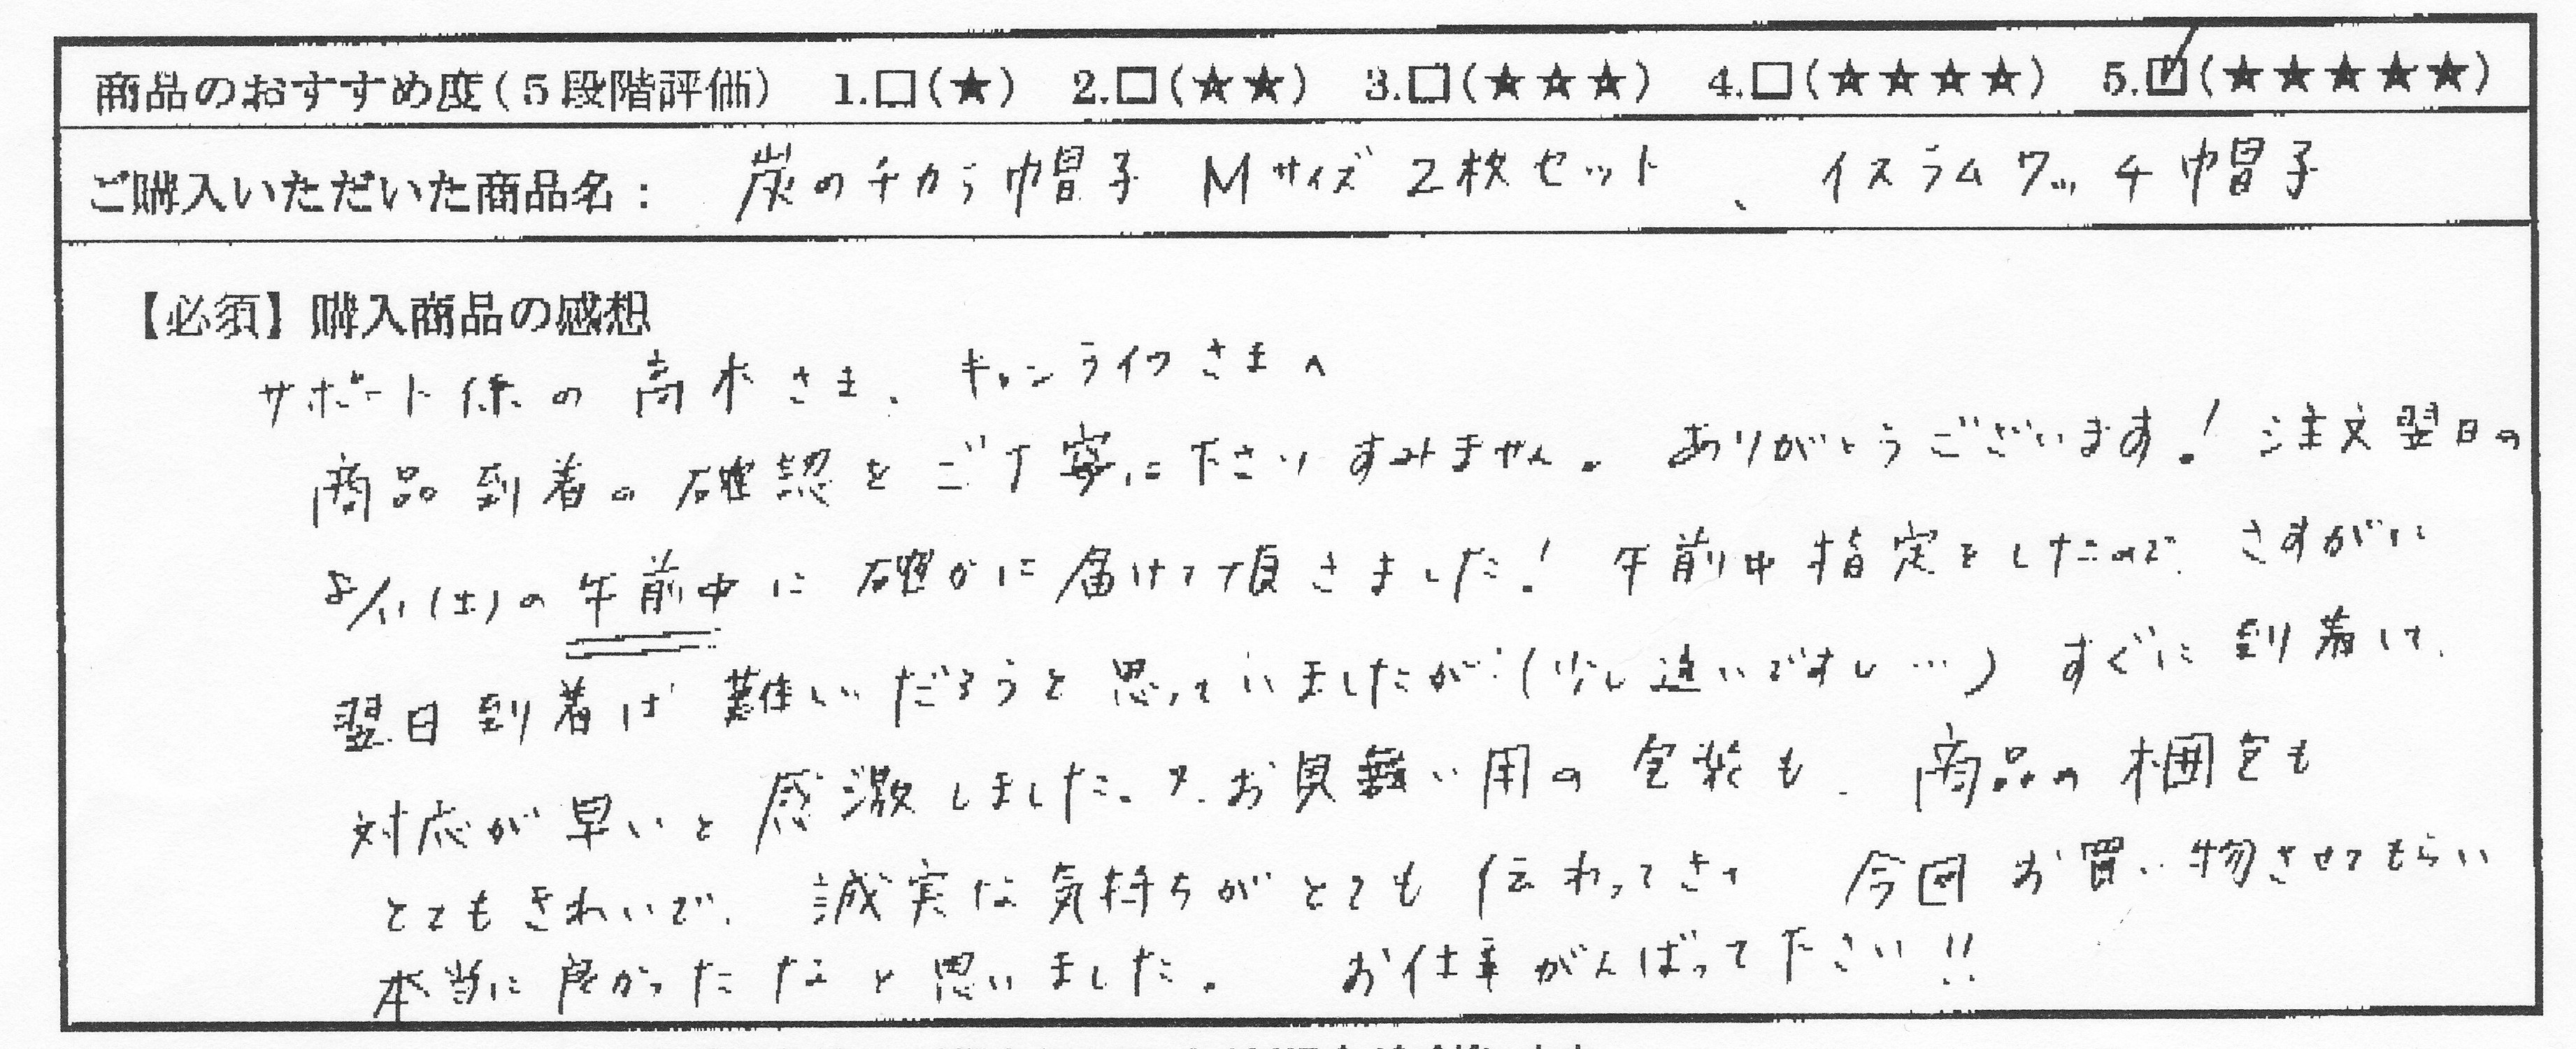 商品のおすすめ度(5段階評価) 1.□(★) 2.□(★★) 3.□(★★★) 4.□(★★★★) 5.☑(★★★★★)
ご購入いただいた商品名: 炭のチカラ帽子 Mサイズ 2枚セット、イスラムワッチ帽子
【必須】購入商品の感想
サポート係の高木さま、キャンライフさまへ
商品到着の確認をご丁寧に下さりすみません。ありがとうございます!注文翌日の
8/11(土)の午前中に確かに届けて頂きました!午前中指定をしたので、さすがに
翌日到着は難しいだろうと思っていましたが(少し遠いですし…)すぐに到着して、
対応が早いと感激しました。又、お見舞い用の包装も、商品の梱包も
とてもきれいで、誠実な気持ちがとても伝わってきて 今回お買い物させてもらい
本当に良かったなと思いました。お仕事がんばって下さい!!